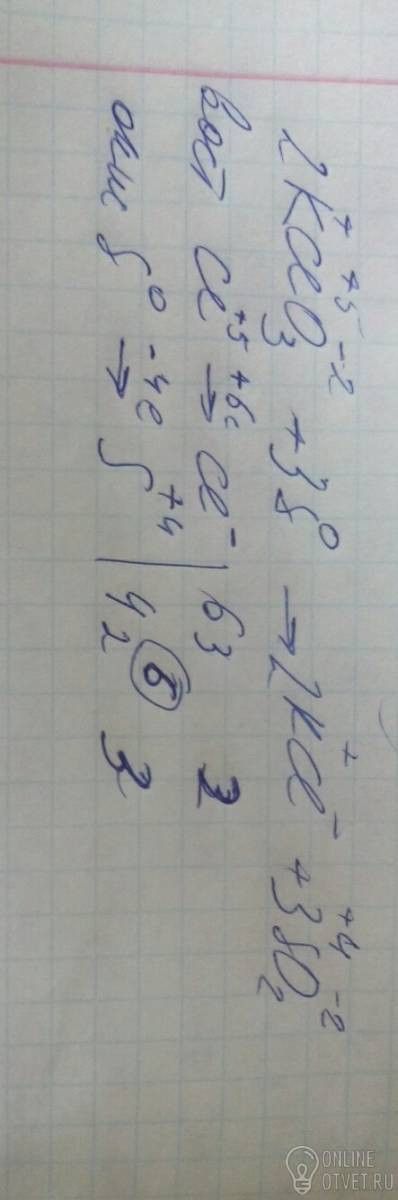 2K⁺Cl⁺⁵O₃⁻² + 3S⁰ → 2K⁺Cl⁻ + 3S⁺⁴O₂⁻²
вост Cl⁺⁵ +6e → Cl⁻ | 6 3 2
окис S⁰ -4e → S⁺⁴ | 4 2 6 3
ONLINE
OTVET.RU